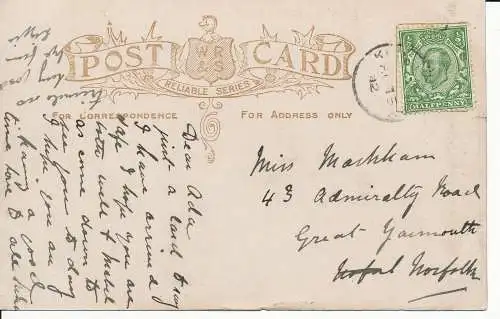 POST CARD
W.R.
& S
RELIABLE SERIES
FOR CORRESPONDENCE
FOR ADDRESS ONLY
HALFPENNY
12
Dear Ada
just a card to say
I have arrived
safe I hope you are
both well & Mabel
as come down to
you to day
I hope you
a good
time love to all
Miss Markham
43 Admiralty Road
Great Yarmouth
Norfolk